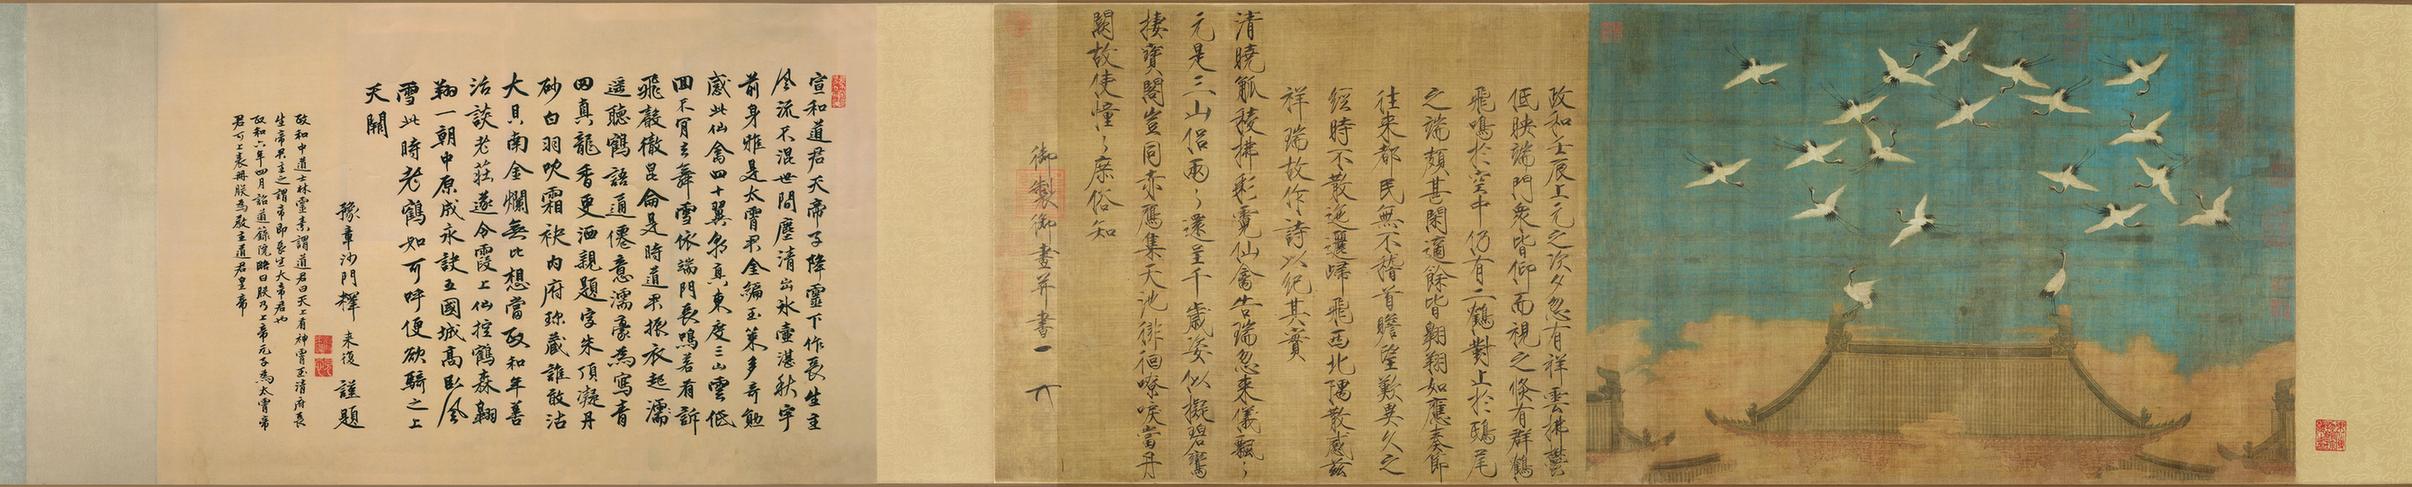 政和壬辰上元之次夕忽有祥雲拂鬱
低映端門衆皆仰而視之倏有群鶴
飛鳴於空中仍有二鶴對止於鴟尾
之端頗甚閑適餘皆翱翔如應奏節
往来都民無不稽首瞻望歎異久之
經時不散迤邐歸飛西北隅散感茲
祥瑞故作詩以紀其實
清曉觚稜拂彩霓仙禽告瑞忽来儀飄々
元是三山侶兩々還呈千歲姿似擬碧鸞
棲寶閣豈同赤鴈集天池徘徊嘹唳當丹
闕故使憧々庶俗知
御製御畫并書
宣和道君天帝子降靈下作長生主
風流不混世間塵清出氷壺湛秋宇
前身雅是太霄君金編玉策多奇勛
感此仙禽四十翼朝真東度三山雲低
回不肯去舞雪依端門長鳴若有訴
飛聲徹昆侖是時道君振衣起濡
遥聽鶴語通僊意濡豪為寫青
田真龍香更洒親題字朱頂凝丹
砂白羽吹霜袂内府珎藏誰敢沽
大貝南金爛無比想當政和年善
治談老莊遂令霞上仙控鶴森翱
翔一朝中原成永訣五國城髙臥風
雪此時老鶴如可呼便欲騎之上
天闕
豫章沙門釋 来復 謹題
政和中道士林靈素謂道君曰天上有神霄玉清府長
生帝君主之謂帝即長生大帝君也
政和六年四月詔道錄院略曰朕乃上帝元子為太霄帝
君可上表册朕為教主道君皇帝